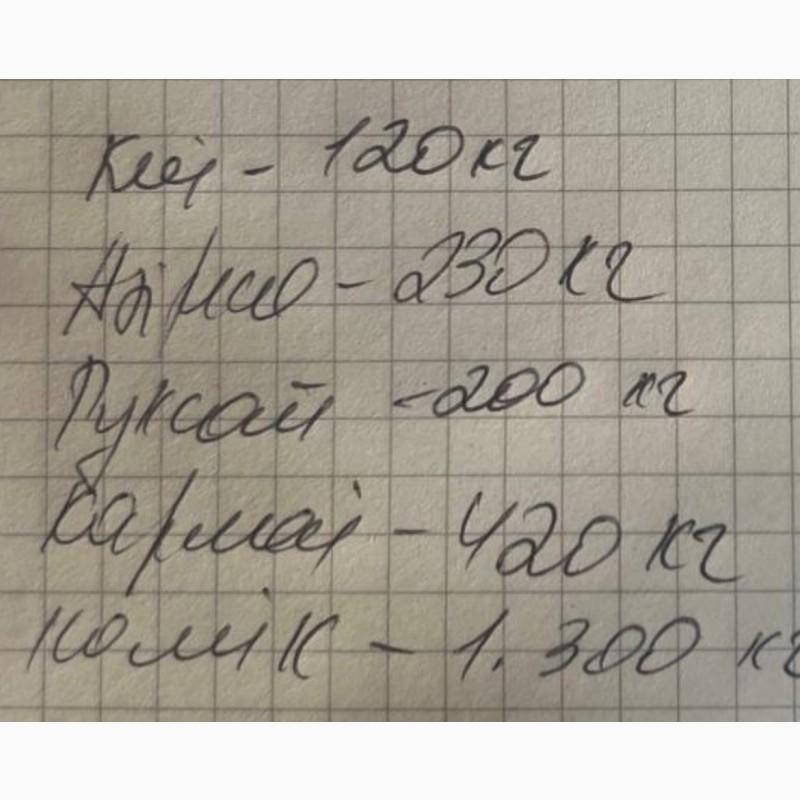 Кмі - 120 кг
- 230 кг
Руксай - 200 кг
Кармаі - 420 кг
Комік - 1.300 кг